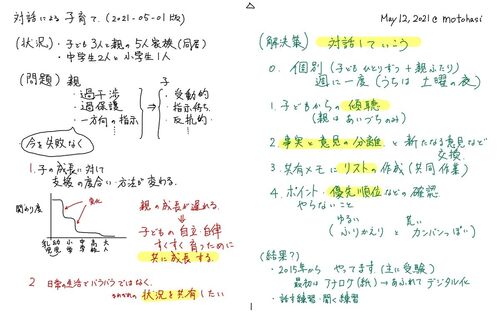 対話による子育て. (2021-05-01版)
(状況)・子ども3人と親の5人家族(同居)
・中学生2人と小学生1人
(問題) 親 子
・過干渉
・過保護
・一方向の指示
⇒
・受動的
・指示待ち
・反抗的
今を失敗なく
1. 子の成長に対して
支援の度合い・方法が変わる.
関わり度
変化
乳児
幼児
小学
中学
高校
大人
親の成長が遅れる.
子どもの自立・自律
すくすく育つために
共に成長する.
2 日常の生活でバラバラではなく.
状況を共有したい
May 12, 2021 @ motohasi
(解決策) 対話していこう
0. 個別(子どもひとりずつ + 親ふたり)
週に一度(うちは 土曜の夜)
1. 子どもからの傾聴
(親はあいづちのみ)
2. 事実と意見の分離 と 新たなる意見など
交換.
3. 共有メモにリストの作成(共同作業)
4. ポイント・優先順位などの確認
やらないこと
ゆるい 荒い
(ふりかえり と カンバンっぽい)
(結果?)
・2015年から やってます(主に受験)
最初はアナログ(紙)→あふれてデジタル化
・話す練習・聞く練習